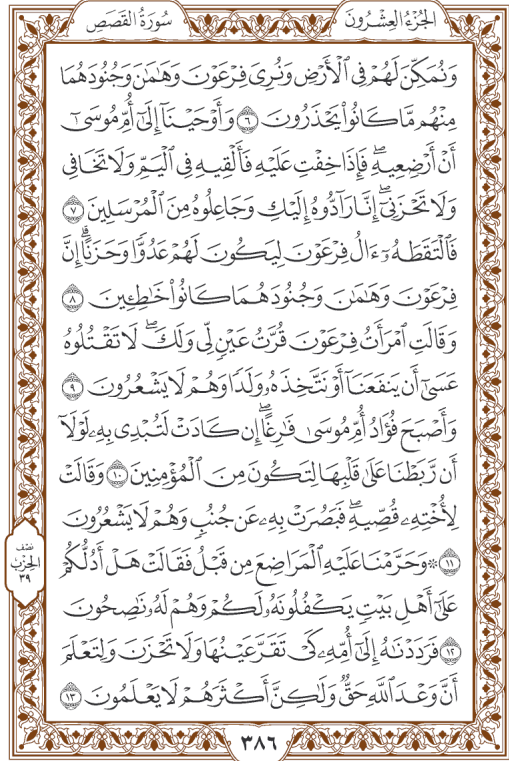 الجُزْءُ العِشْرُونَ
سُورَةُ القَصَصِ
وَنُمَكِّنَ لَهُمْ فِي ٱلْأَرْضِ وَنُرِيَ فِرْعَوْنَ وَهَٰمَٰنَ وَجُنُودَهُمَا
مِنْهُم مَّا كَانُوا۟ يَحْذَرُونَ ٦ وَأَوْحَيْنَآ إِلَىٰٓ أُمِّ مُوسَىٰٓ
أَنْ أَرْضِعِيهِ ۖ فَإِذَا خِفْتِ عَلَيْهِ فَأَلْقِيهِ فِي ٱلْيَمِّ وَلَا تَخَافِي
وَلَا تَحْزَنِيٓ ۖ إِنَّا رَآدُّوهُ إِلَيْكِ وَجَاعِلُوهُ مِنَ ٱلْمُرْسَلِينَ ٧
فَٱلْتَقَطَهُۥٓ ءَالُ فِرْعَوْنَ لِيَكُونَ لَهُمْ عَدُوًّا وَحَزَنًا ۗ إِنَّ
فِرْعَوْنَ وَهَٰمَٰنَ وَجُنُودَهُمَا كَانُوا۟ خَٰطِـِٔينَ ٨
وَقَالَتِ ٱمْرَأَتُ فِرْعَوْنَ قُرَّتُ عَيْنٍ لِّي وَلَكَ ۖ لَا تَقْتُلُوهُ
عَسَىٰٓ أَن يَنفَعَنَآ أَوْ نَتَّخِذَهُۥ وَلَدًا وَهُمْ لَا يَشْعُرُونَ ٩
وَأَصْبَحَ فُؤَادُ أُمِّ مُوسَىٰ فَٰرِغًا ۖ إِن كَادَتْ لَتُبْدِي بِهِۦ لَوْلَآ
أَن رَّبَطْنَا عَلَىٰ قَلْبِهَا لِتَكُونَ مِنَ ٱلْمُؤْمِنِينَ ١٠ وَقَالَتْ
لِأُخْتِهِۦ قُصِّيهِ ۖ فَبَصُرَتْ بِهِۦ عَن جُنُبٍ وَهُمْ لَا يَشْعُرُونَ
١١ ۞ وَحَرَّمْنَا عَلَيْهِ ٱلْمَرَاضِعَ مِن قَبْلُ فَقَالَتْ هَلْ أَدُلُّكُمْ
عَلَىٰٓ أَهْلِ بَيْتٍ يَكْفُلُونَهُۥ لَكُمْ وَهُمْ لَهُۥ نَٰصِحُونَ
١٢ فَرَدَدْنَٰهُ إِلَىٰٓ أُمِّهِۦ كَيْ تَقَرَّ عَيْنُهَا وَلَا تَحْزَنَ وَلِتَعْلَمَ
أَنَّ وَعْدَ ٱللَّهِ حَقٌّ وَلَٰكِنَّ أَكْثَرَهُمْ لَا يَعْلَمُونَ ١٣
نصف
الحزب
٣٩
٣٨٦